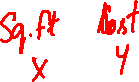 Sq.ft Cost
x y